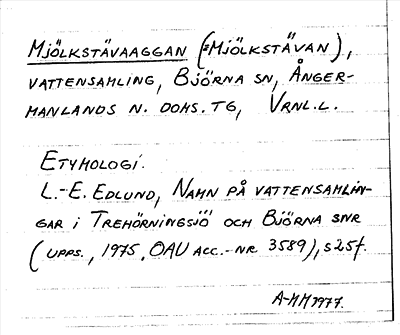 MJÖLKSTÄVAAGGAN (=MJÖLKSTÄVAN),
VATTENSAMLING, BJÖRNA SN, ÅNGER-
MANLANDS N. DOMS. TG, VRNL.L.
ETYMOLOGI.
L.-E. EDLUND, NAMN PÅ VATTENSAMLIN-
GAR I TREHÖRNINGSJÖ OCH BJÖRNA SNR
(UPPS., 1975, OAU ACC.-NR 3589), S 25f.
A-MM 1977.